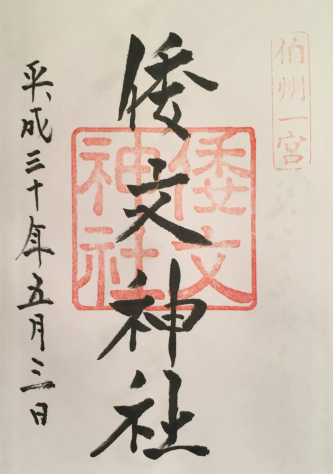 伯州一宮
倭文神社
倭文
神社
平成三十年五月三日